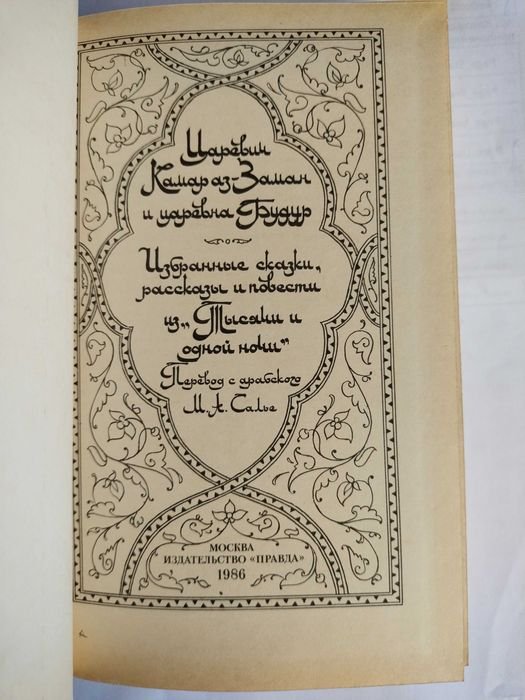 Царевич
Камар аз-Заман
и царевна Будур
Избранные сказки,
рассказы и повести
из „Тысячи и
одной ночи“
Перевод с арабского
М. А. Салье
МОСКВА
ИЗДАТЕЛЬСТВО «ПРАВДА»
1986